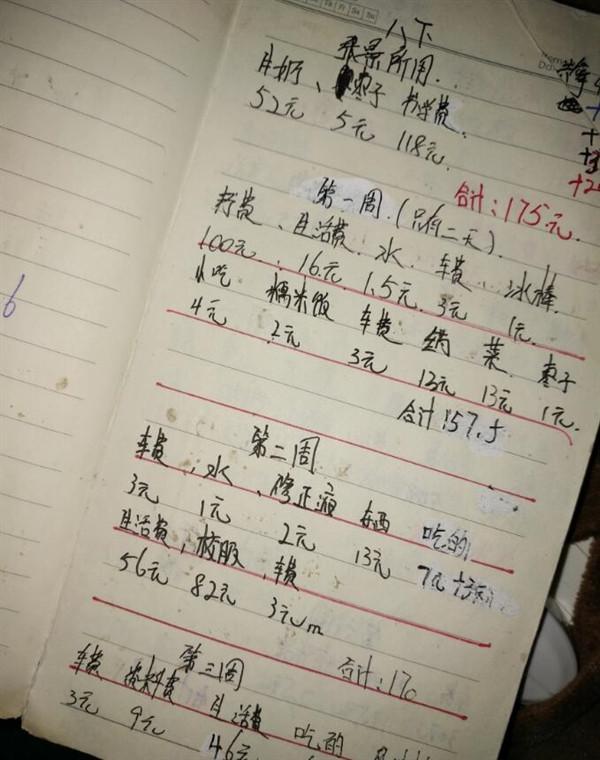 八下
张景所用..
牛奶、枣子 书学费.
52元 5元 118元.
合计:175元.
第一周.(只有二天).
生活费. 水. 车费. 冰棒.
100元. 16元. 1.5元. 3元 1元.
小吃 糯米饭 车费 菜 枣子
4元 2元 3元 13元 13元 1元.
合计:57.5
第二周
车费、水、修正液 东西 吃的
3元 1元 2元 13元
生活费,校服,车费
56元 82元 3元
合计:170
第三周
车费 资料费 生活费 吃的
3元 9元 46元